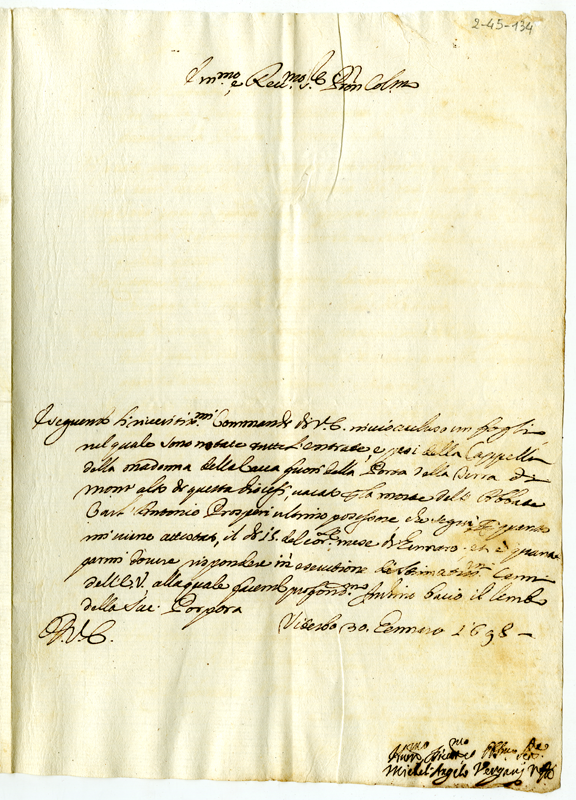 2-45-134
Em.mo e Rev.mo Sig.e P'ron Col.mo
Eseguendo li riveritis.mi Commandi di V.E. invio accluso un foglio
nel quale sono notate tutte l'entrate, e pesi della Cappella
della Madonna della Cava fuori della Porta della Terra di
Mont'alto di questa diocesi, vacata p la morte dell' Abbate
Bart. Antonio Prosperi ultimo possessore che seguì p quanto
mi viene attestato, il dì 15. del cor.te mese di Gennaro. et è quanto
parmi dovere rispondere in esecutione de stimatis.mi Cenni
dell'E.V. alla quale facendo profond.mo Inchino bacio il lembo
della Sac. Porpora
Di V.E. Viterbo 30. Gennaro 1698 -
Hum.mo
Michel Angelo